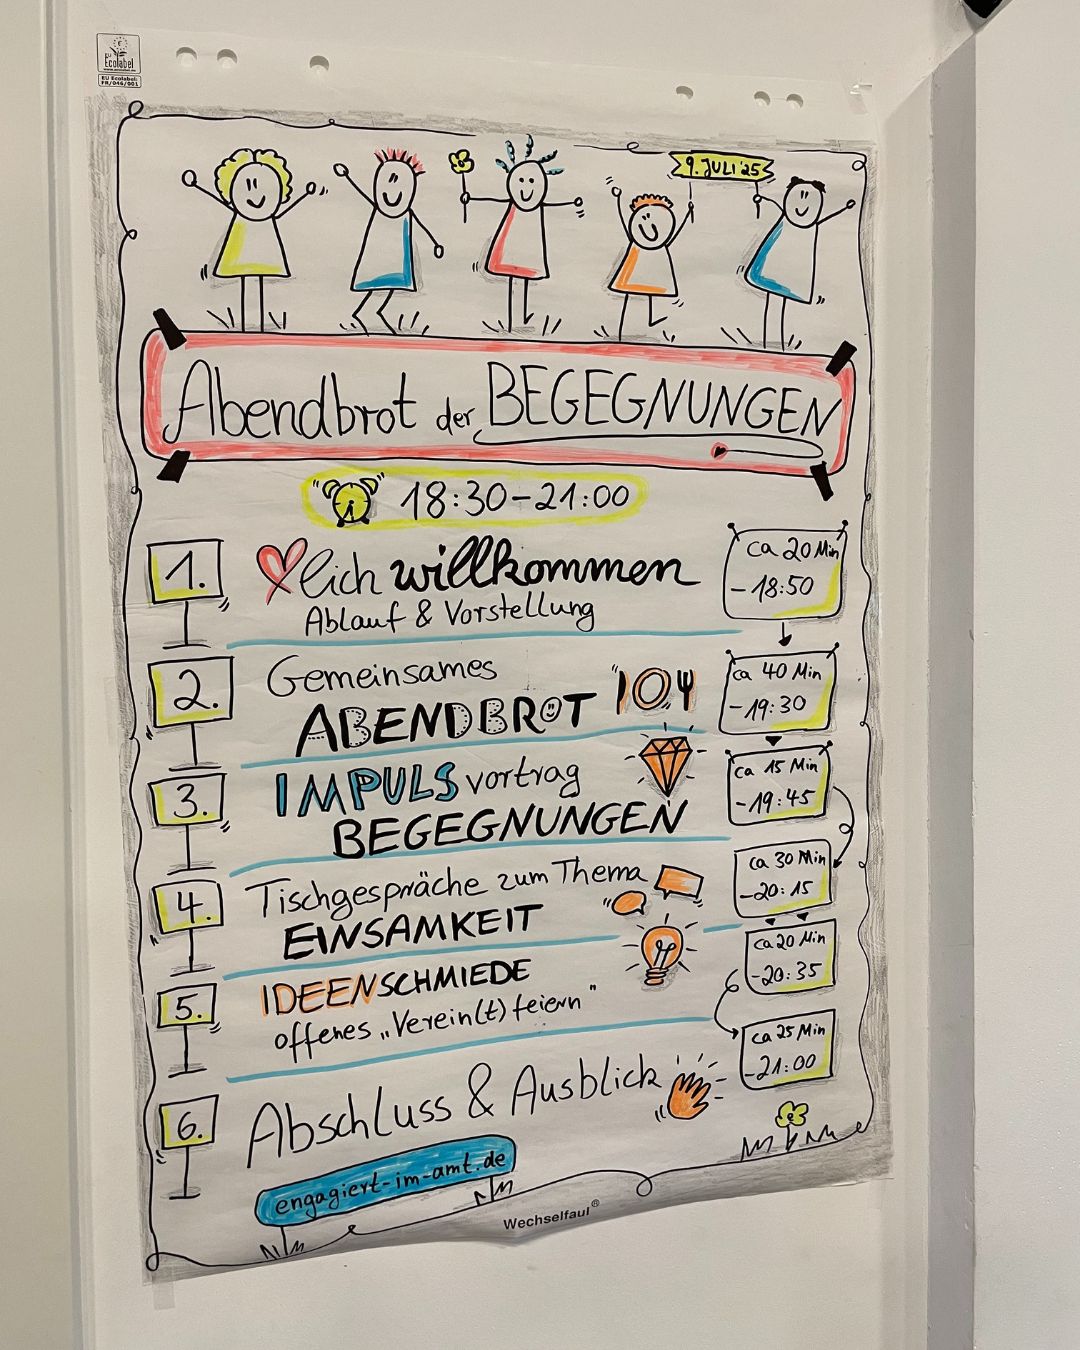 EU
Ecolabel
www.ecolabel.eu
EU Ecolabel:
FR/046/001
9. JULI '25
Abendbrot der BEGEGNUNGEN
18:30-21:00
1.
lich willkommen
Ablauf & Vorstellung
ca 20 Min
- 18:50
2.
Gemeinsames
ABENDBROT
ca 40 Min
- 19:30
3.
IMPULSvortrag
BEGEGNUNGEN
ca 15 Min
- 19:45
4.
Tischgespräche zum Thema
EINSAMKEIT
ca 30 Min
- 20:15
5.
IDEENSCHMIEDE
offenes „Verein(t) feiern"
ca 20 Min
- 20:35
6.
Abschluss & Ausblick
ca 25 Min
- 21:00
engagiert-im-amt.de
Wechselfaul®